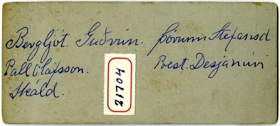 Bergljót. Guðrún. Þórunn Stefansd
Páll Ólafsson. Prest. Desjamýri
Skáld.
21704